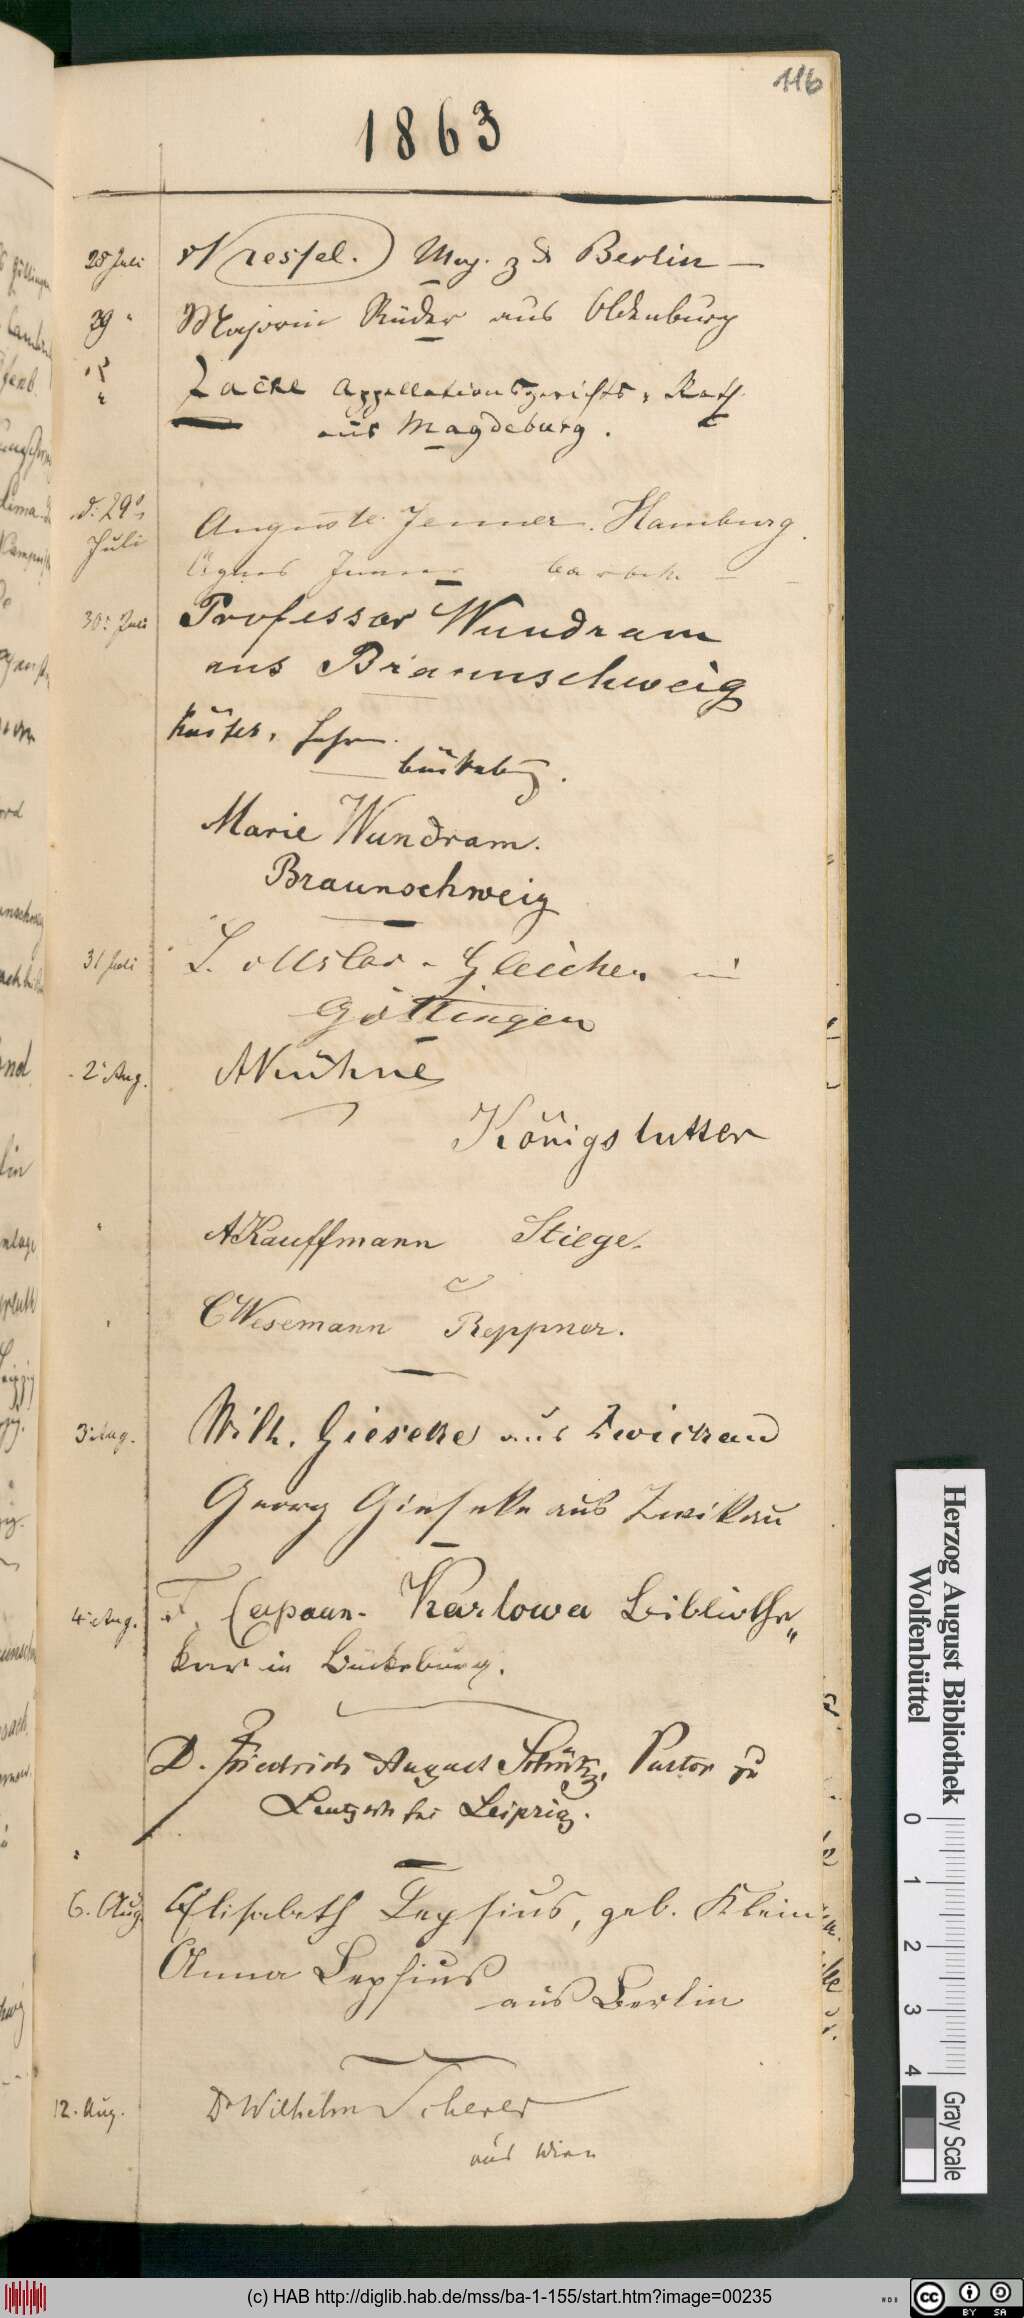 116
1863
28 Juli vKressel. Maj. z D Berlin
29 " Majorin Rüder aus Oldenburg
Zacke Appellationsgerichts-Rath
aus Magdeburg.
d. 29
Juli
Auguste Jenner. Hamburg.
Agnes Jenner
30. Juli Professor Wundram
aus Braunschweig
Küster,
bückebg.
Marie Wundram.
Braunschweig
31 Juli L. v Uslar-Gleichen in
Göttingen
2. Aug. A Kühne
Königslutter
A Kauffmann Stiege.
C Wesemann Reppner.
3. Aug. Wilh. Gieseke aus Zwickau
Georg Gieseke aus Zwikau
4. Aug. Capaun-Karlowa Bibliothe„
kar in Bückeburg.
D. Friedrich August Schütz, Pastor zu
Leutzsch bei Leipzig.
6. Aug. Elisabeth Lepsius, geb. Klein
Anna Lepsius
aus Berlin
12. Aug. Dr Wilhelm Scherer
aus Wien
Herzog August Bibliothek
Wolfenbüttel
0 1 2 3 4
Gray Scale
(c) HAB http://diglib.hab.de/mss/ba-1-155/start.htm?image=00235
cc BY SA